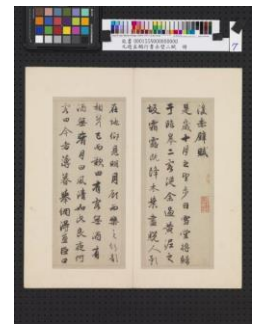 元趙孟頫行書赤壁二賦 冊
7
後赤壁賦
是歲十月之望步自雪堂將歸
于臨皋二客從余過黃泥之
坂霜露既降木葉盡脫人影
在地仰見明月顧而樂之行歌
相答已而歎曰有客無酒有
酒無肴月白風清如此良夜何
客曰今者薄暮舉網得魚巨口